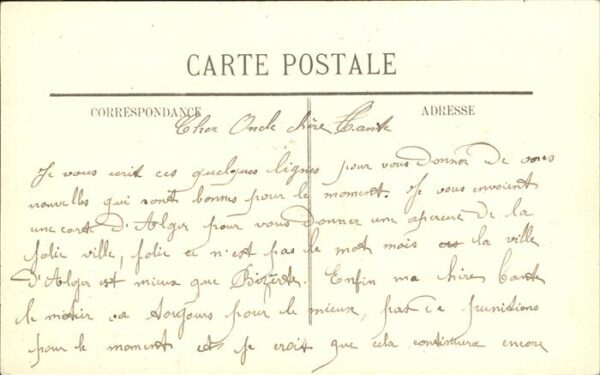 CARTE POSTALE
CORRESPONDANCE
ADRESSE
Cher Oncle chère Tante
Je vous ecrit ces quelques lignes pour vous donnér de vous
nouvelles qui sont bonnes pour le moment. Je vous envoient
une cart d'Alger pour vous donner une apercue de la
jolie ville, jolie ce n'est pas le mot mais la ville
d'Alger est mieux que Bizerte. Enfin ma chère tante
le metier va toujours pour le mieux, pas de punitions
pour le moment et je croit que cela continuera encore